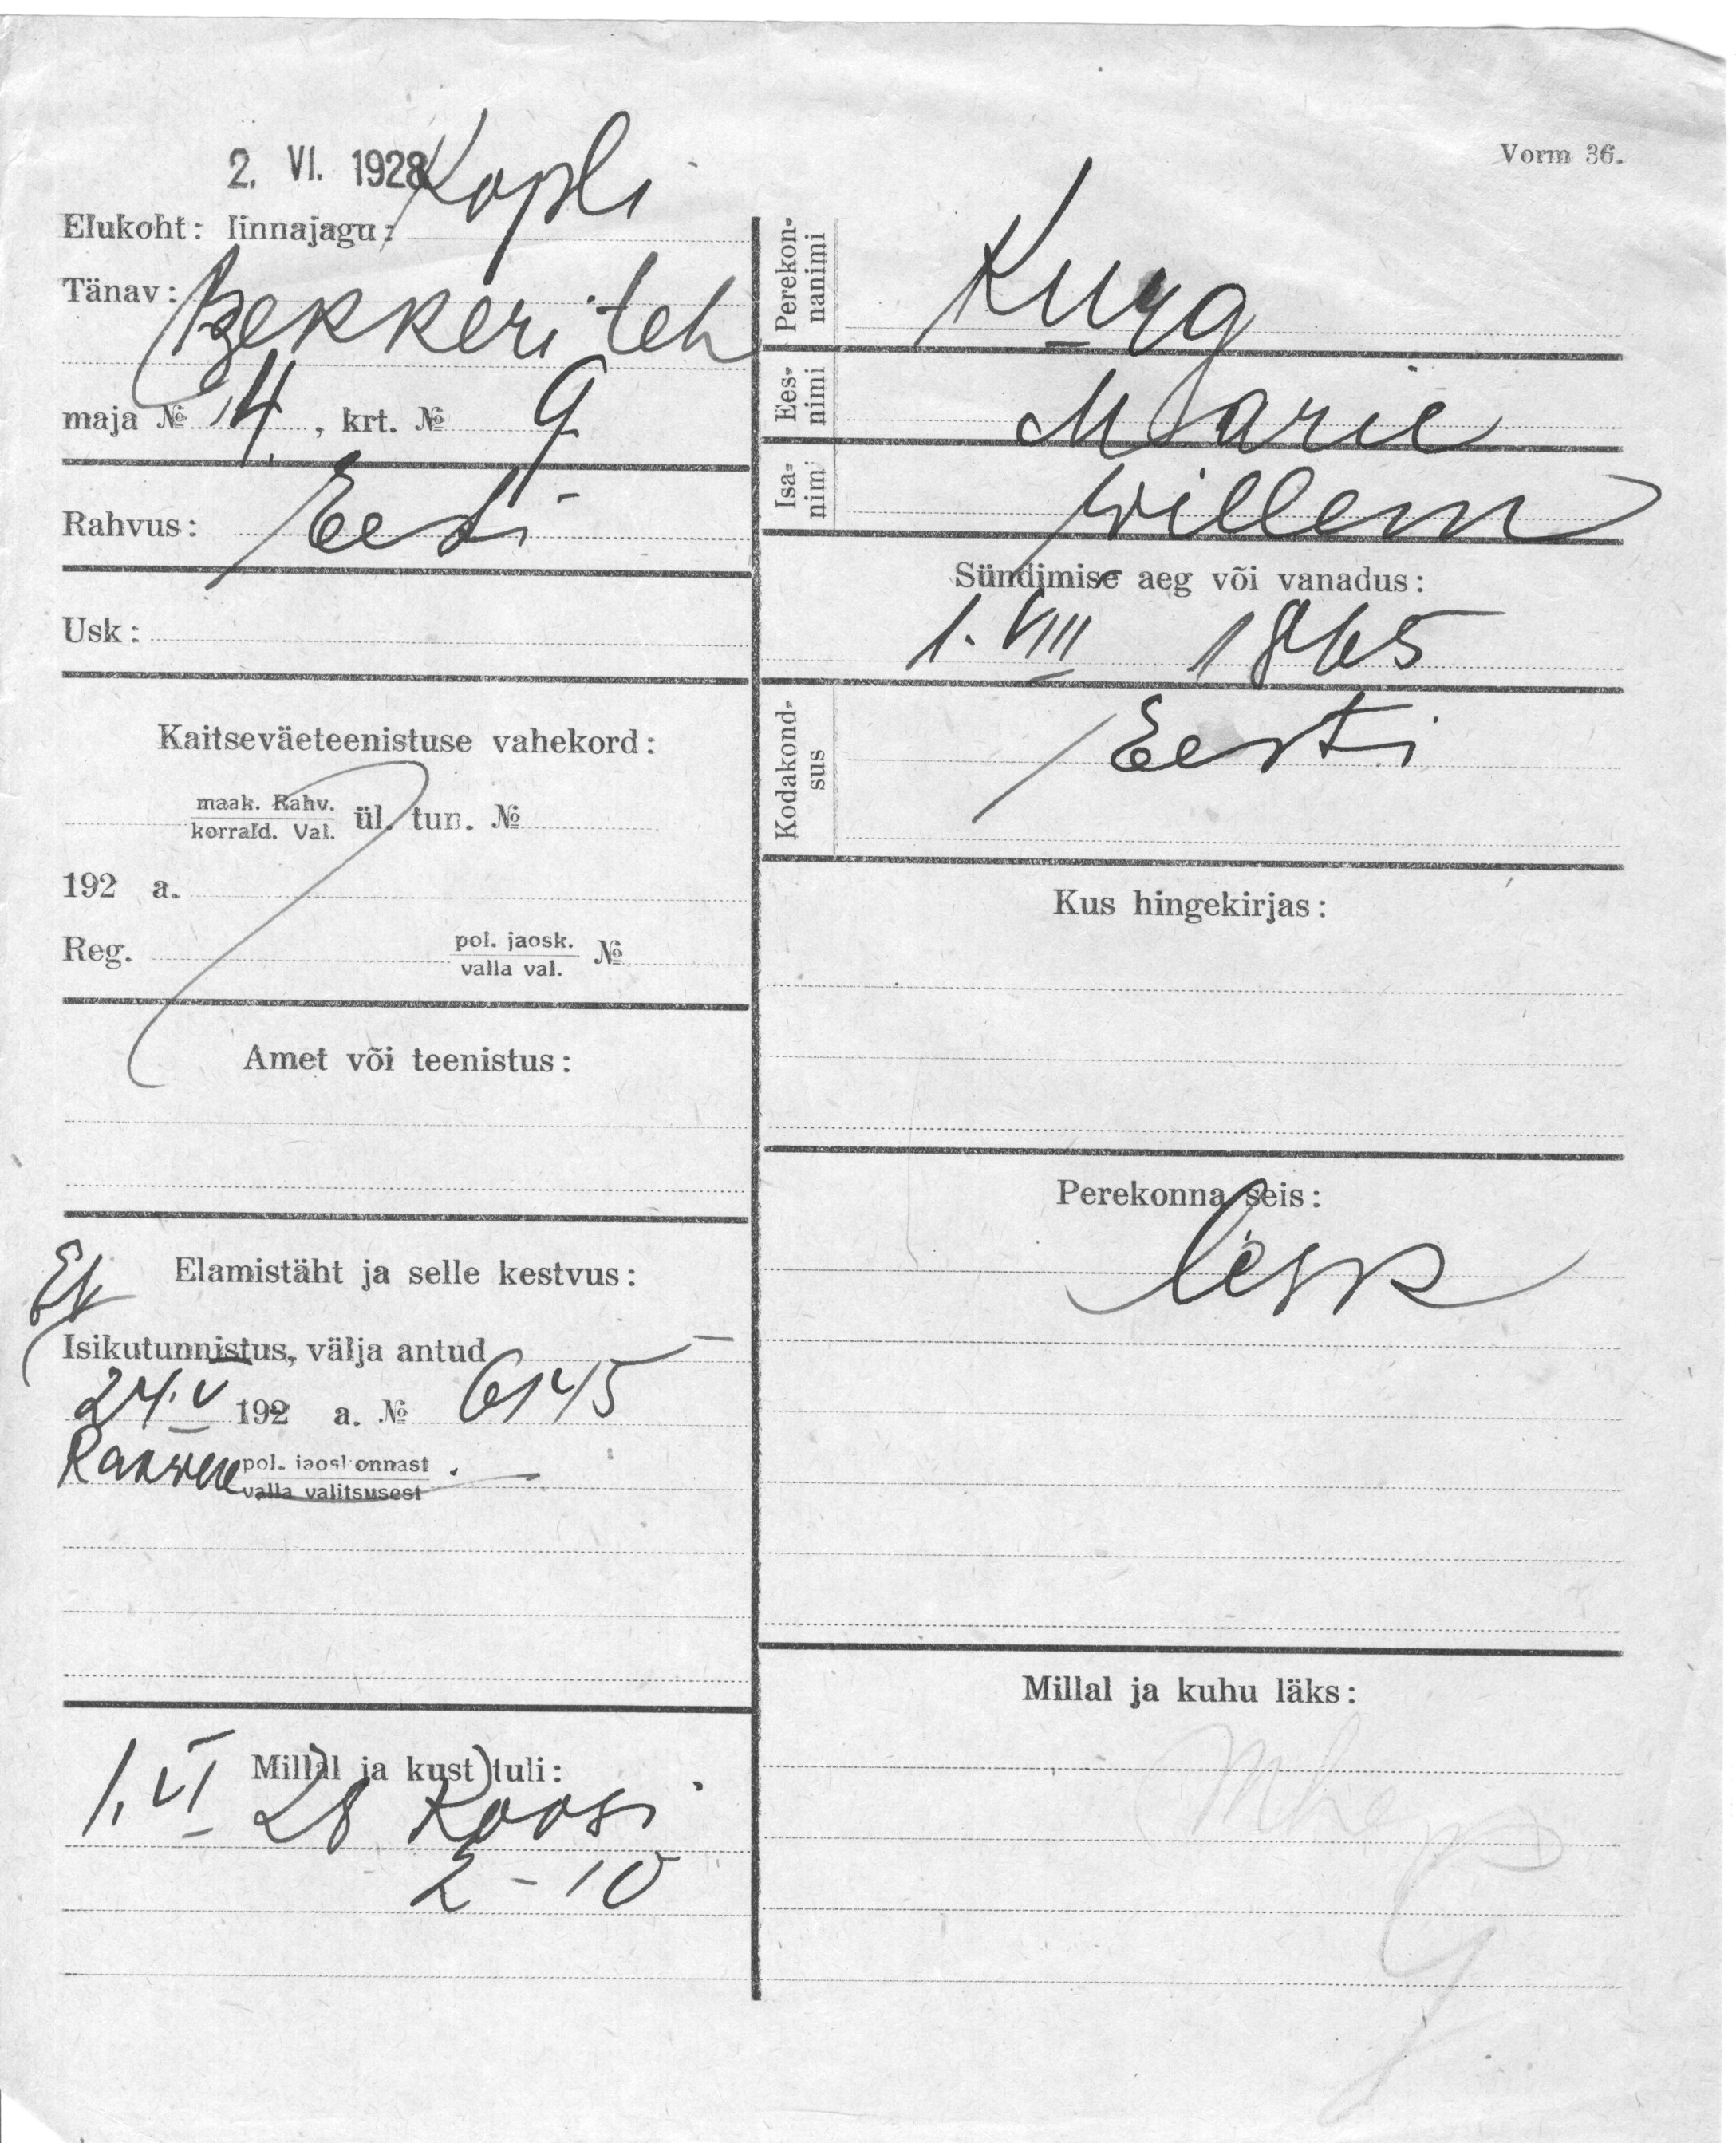 Vorm 36.
2. VI. 1928
Elukoht: linnajagu: Kopli
Tänav: Bekkeri teh
maja № 4. , krt. № 9
Rahvus: Eesti
Usk:
Kaitseväeteenistuse vahekord:
maak. Rahv.
korrald. Val. ül. tun. №
192 a.
Reg. pol. jaosk. №
valla val.
Amet või teenistus:
Elamistäht ja selle kestvus:
Isikutunnistus, välja antud
24. V 192 a. № 6145
Rakwere pol. jaoskonnast
valla valitsusest
Millal ja kust tuli:
1. VI 28 Roosi
2-10
Perekon-
nanimi Kurg
Ees-
nimi Marie
Isa-
nimi Willem
Sündimise aeg või vanadus:
1. VIII 1865
Kodakond-
sus Eesti
Kus hingekirjas:
Perekonna seis:
lesk
Millal ja kuhu läks: